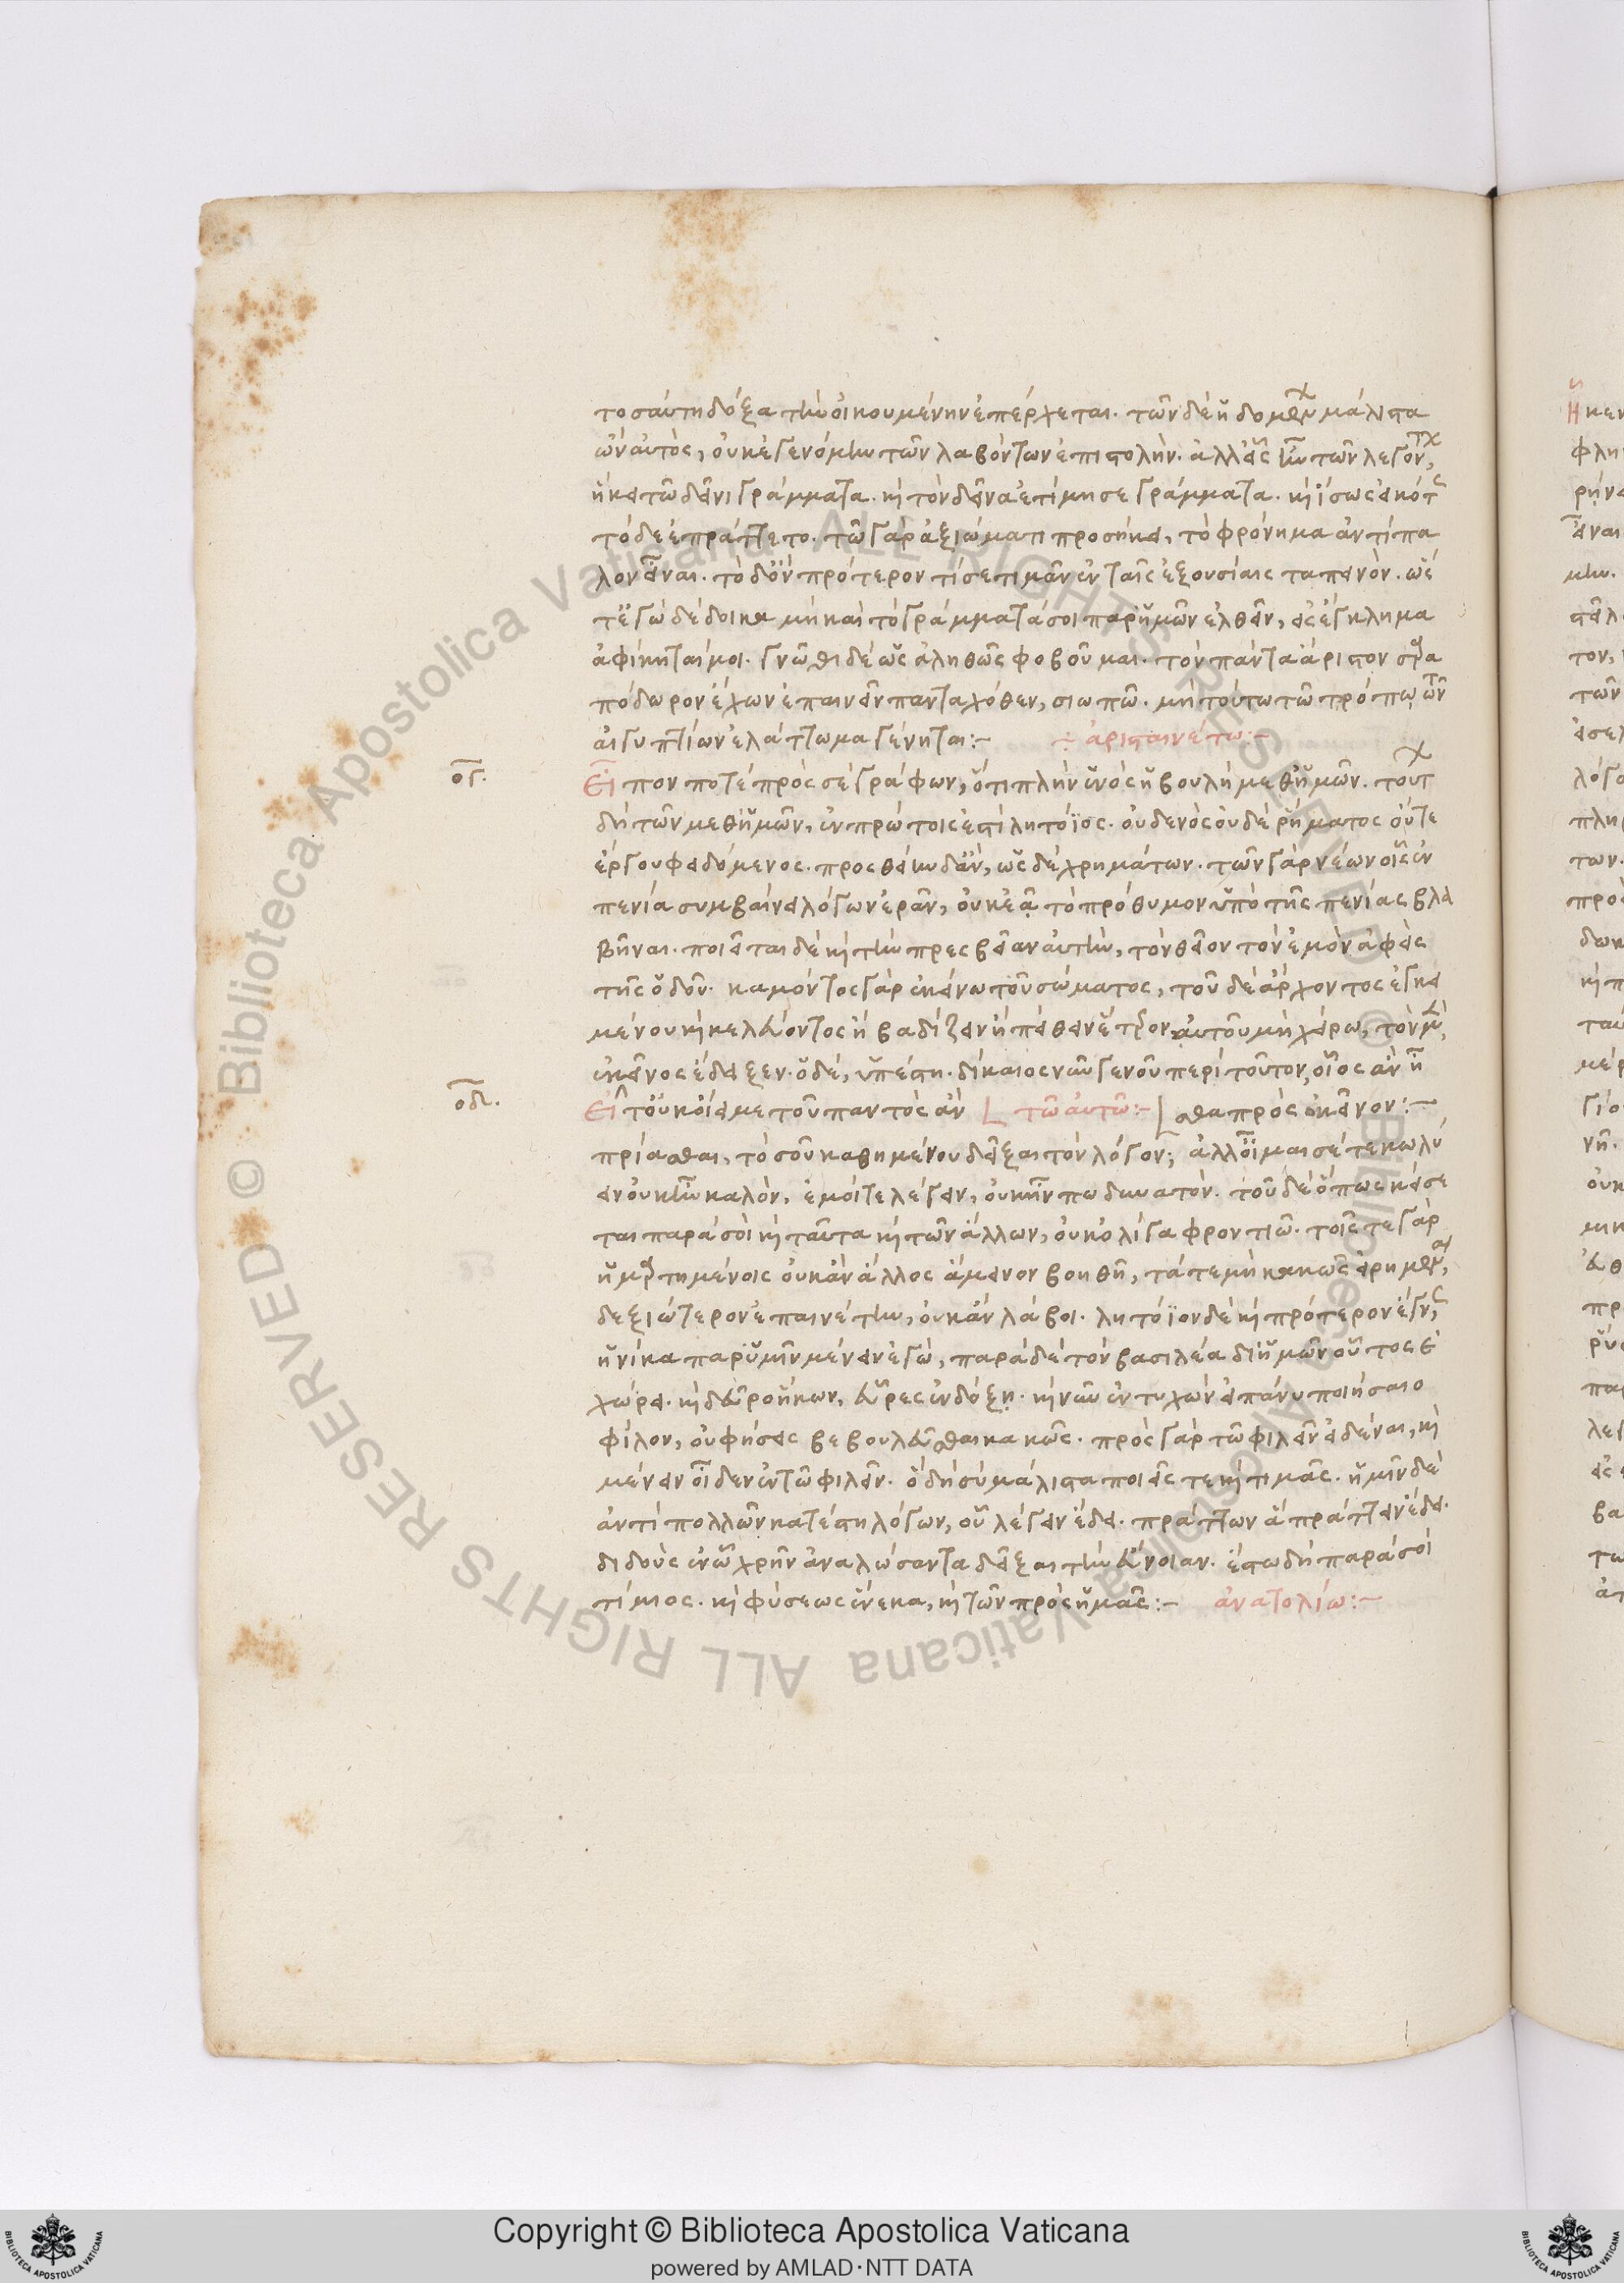 τοσαύτη δόξα τὴν οἰκουμένην ἐπέρχεται. τῶν δὲ ἡδομένων μάλιστα
ὢν αὐτὸς, οὐκ ἐγενόμην τῶν λαβόντων ἐπιστολήν. ἀλλ' εἷς ἦν τῶν λεγόντων,
ἧκε τῷ δεῖνι γράμματα. καὶ τὸν δεῖνα ἐτίμησε γράμματα. καὶ ἴσως εἰκότως
τόδε ἐπράττετο. τῷ γὰρ ἀξιώματι προσήκει, τὸ φρόνημα ἀντίπα
λον εἶναι. τὸ δ' οὖν πρότερόν τίσε τιμᾶν ἐν ταῖς ἐξουσίαις ταπεινὸν.
τ' ἔγωγε δέδοικα μὴ καὶ τὸ γράμματά σοι παρ' ἡμῶν ἐλθεῖν, εἰς ἔγκλημα
ἀφίκηταί μοι. γνῶθι δέ ὡς ἀληθῶς φοβοῦμαι. τὸν πάντα ἄριστον στρα
πόδωρον ἔχων ἐπαινεῖν πανταχόθεν, σιωπῶ. μὴ τούτῳ τῷ τρόπῳ τῶν
αἰγυπτίων ἐλάττωμα γένηται:-   ÷ ἀρισταινέτω:-
ογ. Εἶπόν ποτε πρὸς σὲ γράφων, ὅτι πλὴν ἑνὸς ἡ βουλὴ μεθ' ἡμῶν. τούτων
δὴ τῶν μεθ' ἡμῶν, ἐν πρώτοις ἐστὶ λητόϊος. οὐδενὸς οὐδὲ ῥήματος οὔτε
ἔργου φειδόμενος. προσθείην δ' ἂν, ὡς δὲ χρημάτων. τῶν γὰρ νέων οἷς ἐν
πενία συμβαίνει λόγων ἐρᾶν, οὐκ ἐᾷ τὸ πρόθυμον ὑπὸ τῆς πενίας βλα
βῆναι. ποιεῖται δὲ καὶ τὴν πρεσβείαν αὐτὴν, τὸν θεῖον τὸν ἐμὸν ἀφεὶς
τῆς ὁδοῦ. καμόντος γὰρ ἐκείνω τοῦ σώματος, τοῦ δὲ ἄρχοντος ἐγκει
μένου καὶ κελεύοντος ἢ βαδίζειν ἢ πείθειν ἕτερον αὐτοῦ μὴ χείρω, τὸν μὲν,
ἐκεῖνος ἔδειξεν. ὁ δέ, ὑπέστη. δίκαιος νῦν γενοῦ περὶ τοῦτον, οἷος ἂν ᾖ
οδ. Εἶτ' οὐκ οἴει με τοῦ παντὸς ἂν   τῶ αὐτῶ:-   σθα πρὸς ἐκεῖνον:-
πρίασθαι, τὸ σοῦ καθημένου δεῖξαι τὸν λόγον; ἀλλ' οἶμαι σέ τε κωλύ
ειν οὐκ ἦν καλὸν, ἐμοί τε λέγειν, οὐκ ἦν πω δυνατὸν. τοῦ δὲ ὅπως κείσε
ται παρὰ σοὶ καὶ ταῦτα καὶ τῶν ἄλλων, οὐκ ὀλίγα φροντιῶ. τοῖς τε γὰρ
ἡμαρτημένοις οὐκ ἂν ἄλλος ἄμεινον βοηθῇ, τά τε μὴ κακῶς εἰρημένα,
δεξιώτερον ἐπαινέτην, οὐκ ἂν λάβοι. λητόϊον δὲ καὶ πρότερον ἔγνως
ἡνίκα παρ' ὑμῖν μένειν ἐγώ, παρὰ δὲ τὸν βασιλέα δι' ἡμῶν οὗτος ἐ
χώρει. καὶ δεῦρο ἥκων, εὗρες ἐν δόξῃ. καὶ νῦν ἐντυχὼν εἰ πάνυ ποιήσαιο
φίλον, οὐ φήσεις βεβουλεῦσθαι κακῶς. πρὸς γὰρ τῷ φιλεῖν εἰδέναι, καὶ
μένειν οἶδεν ἐν τῷ φιλεῖν. ὃ δὴ σὺ μάλιστα ποιεῖς τε καὶ τιμᾷς. ἡμῖν δὲ
ἀντὶ πολλῶν κατέστη λόγων, οὗ λέγειν ἔδει. πράττων ἃ πράττειν ἔδει.
διδοὺς ἐν ᾧ χρῆν ἀναλώσαντα δεῖξαι τὴν εὔνοιαν. ἔστω δὴ παρὰ σοί
τίμιος. καὶ φύσεως ἕνεκα, καὶ τῶν πρὸς ἡμᾶς:-   ἀνατολίω:-
Copyright © Biblioteca Apostolica Vaticana
powered by AMLAD·NTT DATA
© Biblioteca Apostolica Vaticana ALL RIGHTS RESERVED
© Biblioteca Apostolica Vaticana ALL RIGHTS RESERVED
BIBLIOTECA APOSTOLICA VATICANA
BIBLIOTECA APOSTOLICA VATICANA